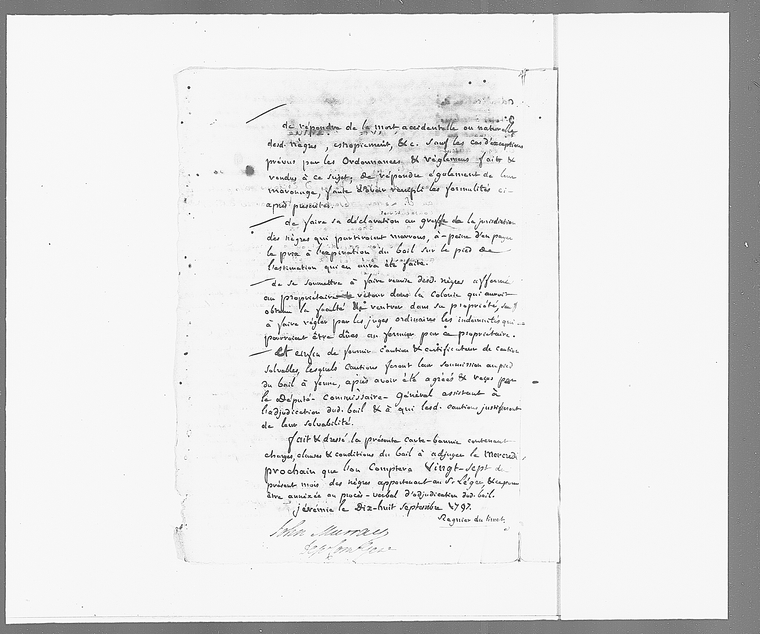 de répondre de la mort accidentelle ou naturelle
desd. nègres, estropiement, &c. sauf les cas d'exceptions
prévus par les Ordonnances & réglémens faits &
rendus à ce sujet; de répondre également de leur
maronage, faute d'avoir rempli les formalités ci-
après prescrites.
de faire sa déclaration au greffe de la jurisdiction
des nègres qui partiroient marrons, à-peine d'en payer
le prix à l'expiration du bail sur le pied de
l'estimation qui en aura été faite.
de se soumettre à faire remise desd. nègres affermés
au propriétaire de retour dans la colonie qui auroit
obtenu la faculté de rentrer dans sa propriété, sauf
à faire régler par les juges ordinaires les indemnités qui
pourroient être dûes au fermier par ce propriétaire.
Et enfin de fournir caution & certificateur de caution
solvables, lesquels cautions feront leur soumission au pied
du bail à ferme, après avoir été agréés & reçus par
le Député-Commissaire-Général assistant à
l'adjudication dud. bail & à qui lesd. cautions justifieront
de leur solvabilité.
fait & dressé la présente carte-bannie contenant
charges, clauses & conditions du bail à adjuger le Mercredi
prochain que l'on comptera Vingt-Sept du
présent mois des nègres appartenant au Sr. Léger, &
être annéxée au procès-verbal d'adjudication dud. bail.
jérémie le Dix-huit Septembre 1797.
John Murray